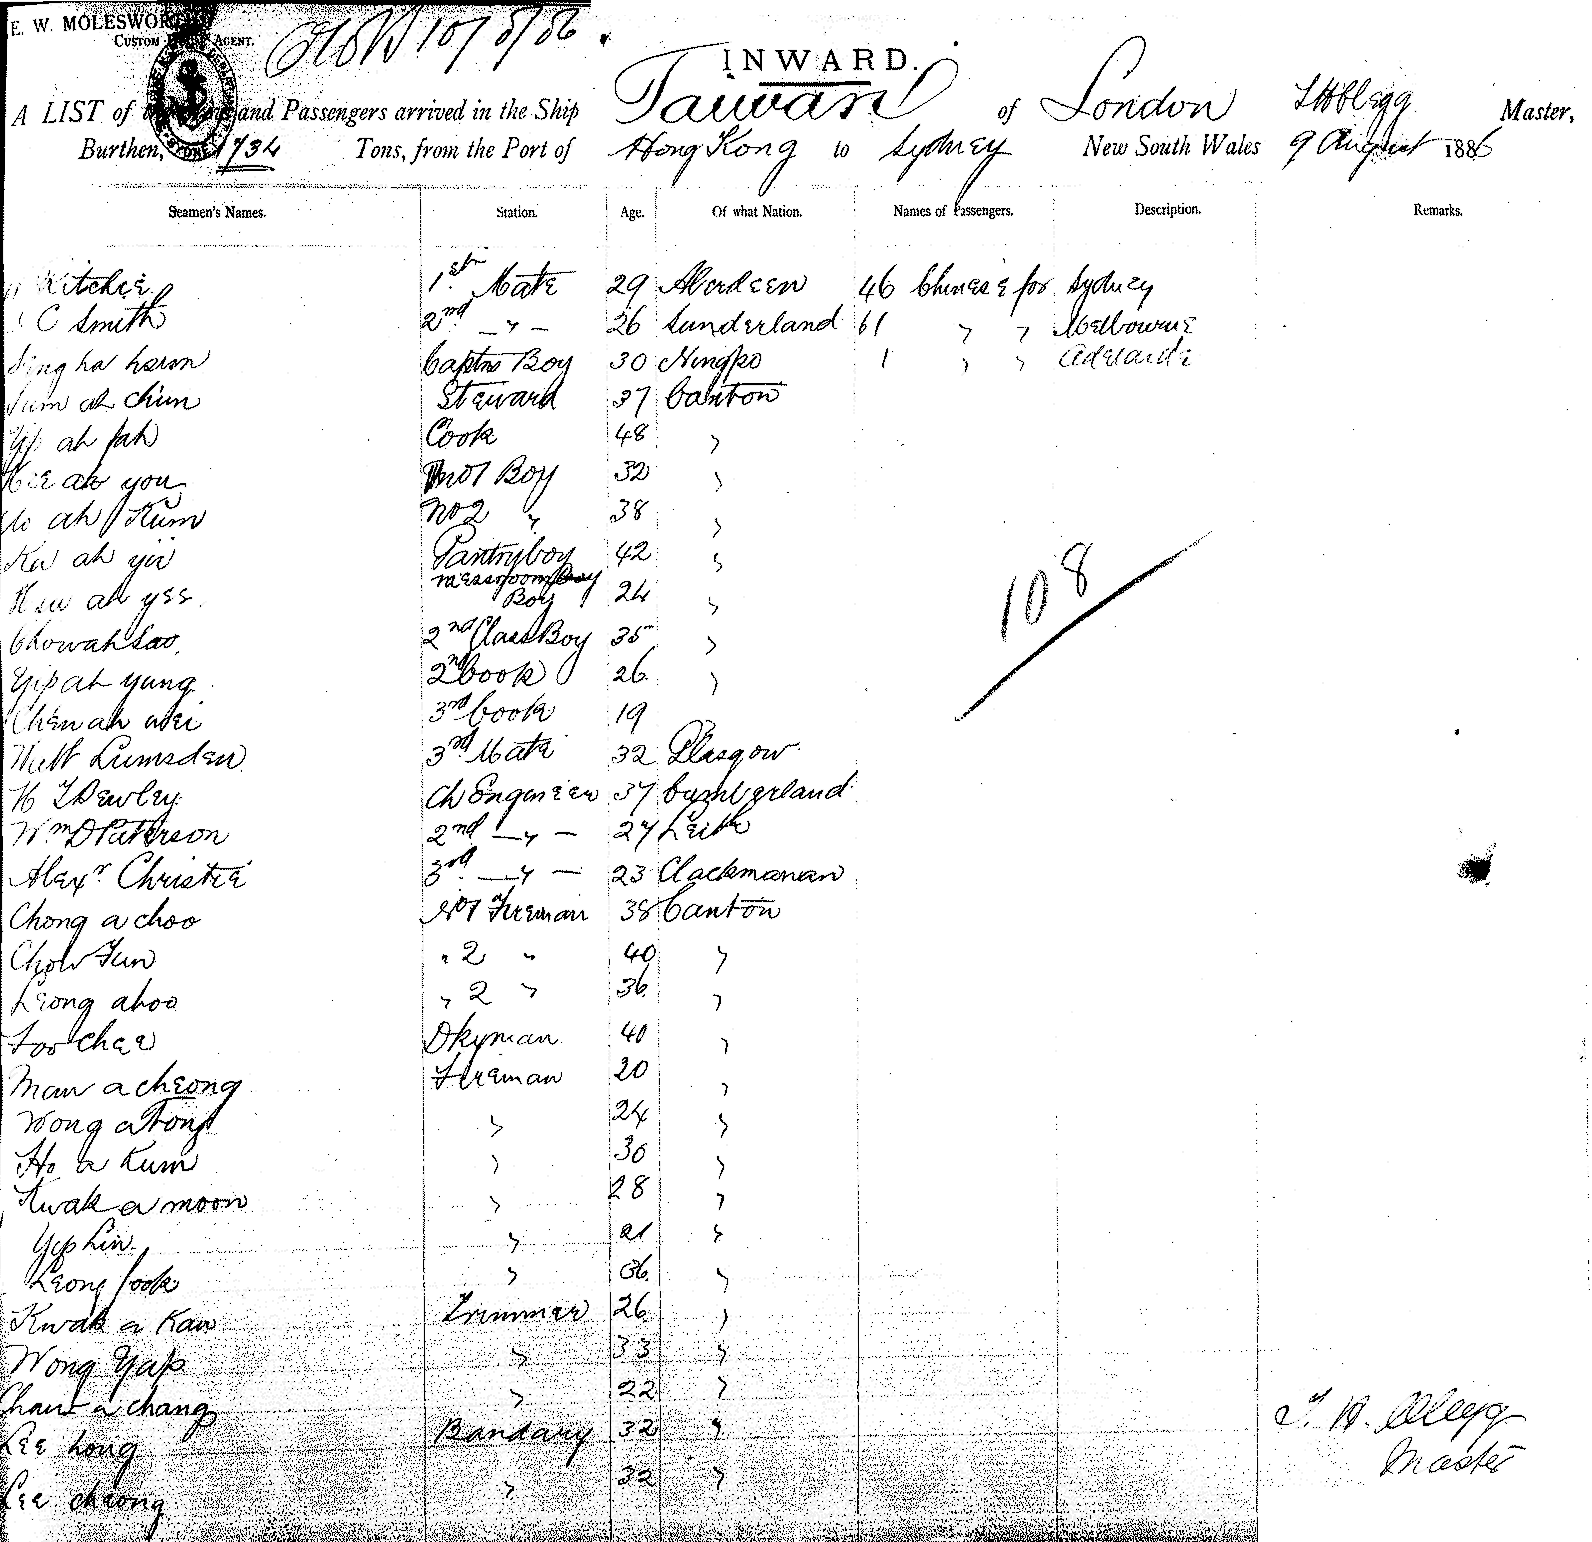 E. W. MOLESWORTH
CUSTOM HOUSE AGENT.
10/8/86
INWARD.
A LIST of and Passengers arrived in the Ship Taiwan of London Master,
Burthen, 1734 Tons, from the Port of Hong Kong to Sydney New South Wales 9 August 1886
Seamen's Names. Station. Age. Of what Nation. Names of Passengers. Description. Remarks.
Ritchie 1st Mate 29 Aberdeen 46 Chinese for Sydney
C Smith 2nd -"- 26 Sunderland 61 " " Melbourne
Captns Boy 30 Ningpo 1 " " Adelaide
ah Chun Steward 37 Canton
Yip ah fah Cook 48 "
ah you No1 Boy 32 "
ah Kum No2 " 38 "
ah Pantryboy 42 "
ah yee messroom Boy 24 "
Chow ah Sao 2nd Class Boy 35 "
Yip ah yung 2nd Cook 26 "
Chen ah wei 3rd Cook 19
108
Lumsden 3rd Mate 32 Glasgow
Dewley Ch Engineer 37 Cumberland
Wm D Paterson 2nd -"- 27 Leith
Alexr Christie 3rd -"- 23 Clackmanan
Chong a choo No1 Fireman 38 Canton
Chow Fun " 2 " 40 "
Leong ahoo " 2 " 36 "
Foo Chee Dkyman 40 "
Man a cheong Fireman 20 "
Wong a Fong " 24 "
Ho a Kum " 30 "
Kwak a moon " 28 "
Yip Lin " 21 "
Leong fook " 36 "
Kwak a Kan Trimmer 26 "
Wong Yap " 33 "
Chan a chang " 22 "
Lee hong Bandary 32 "
Lee cheong " 32 "
Master